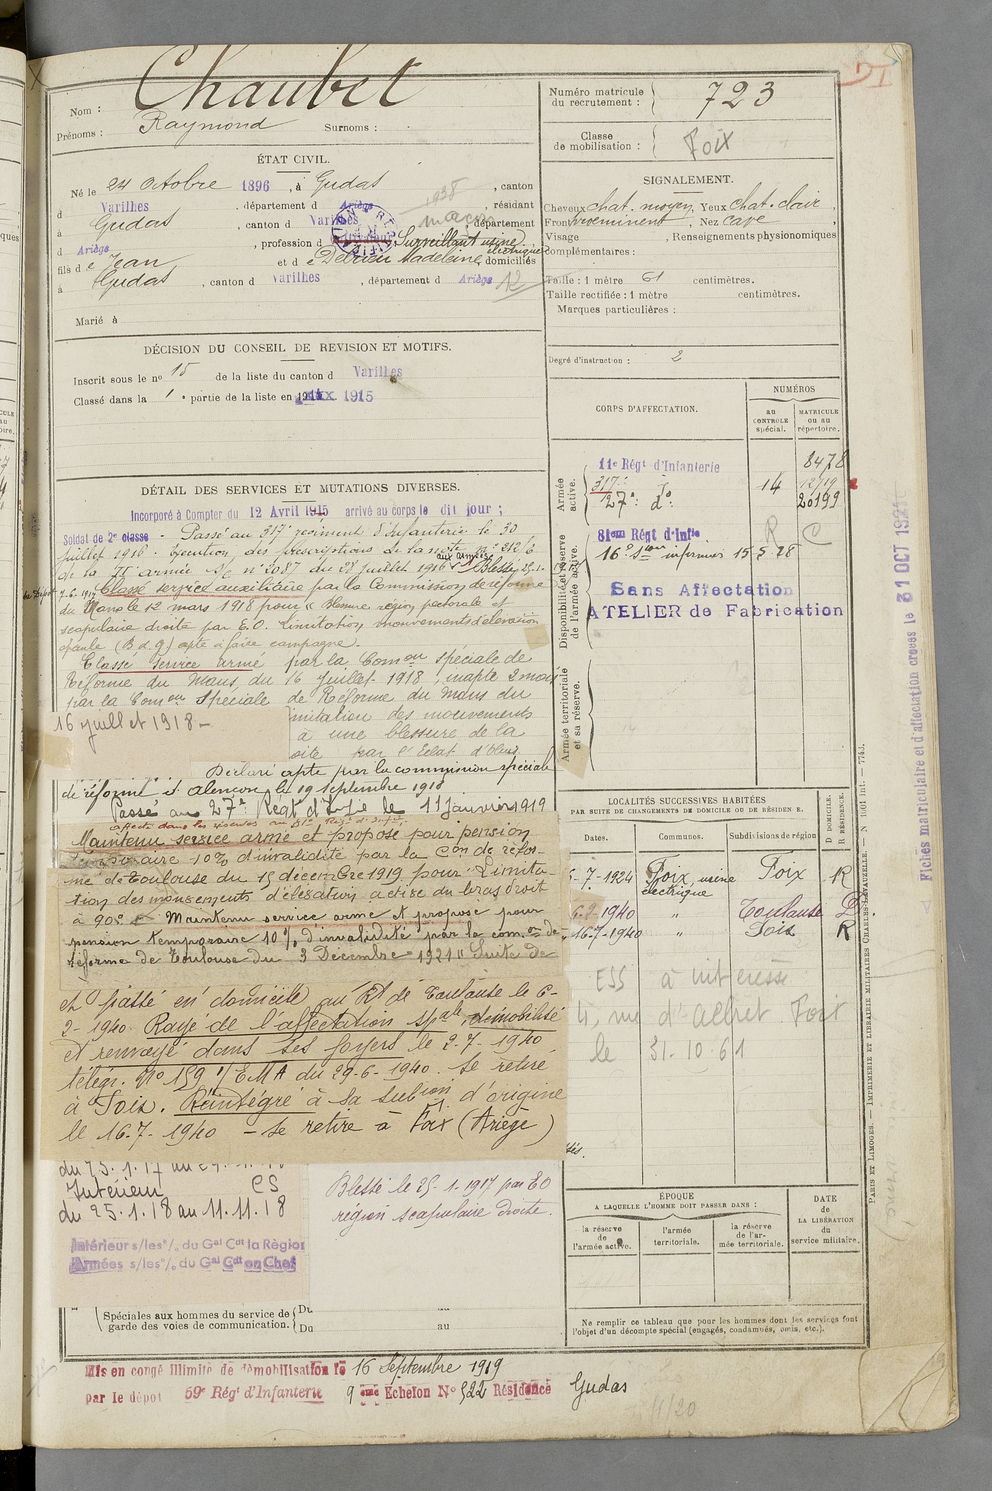 Nom : Chaubet
Prénoms : Raymond Surnoms :
Numéro matricule du recrutement : 723
Classe de mobilisation : Foix
ÉTAT CIVIL.
Né le 24 octobre 1896, à Gudas, canton
d Varilhes, département d Ariège, résidant
à Gudas, canton d Varilhes, département
d Ariège, profession d Surveillant usine électrique
fils de Jean et de Delrieu Madeleine, domiciliés
à Gudas, canton d Varilhes, département d Ariège
1938
maçon
12
Marié à
SIGNALEMENT.
Cheveux chat. moyen, Yeux chat. clair,
Front proéminent, Nez cave,
Visage , Renseignements physionomiques
complémentaires :
Taille : 1 mètre 61 centimètres.
Taille rectifiée : 1 mètre centimètres.
Marques particulières :
Degré d'instruction : 2
DÉCISION DU CONSEIL DE REVISION ET MOTIFS.
Inscrit sous le no 15 de la liste du canton d Varilhes
Classé dans la 1 e partie de la liste en 1915
CORPS D'AFFECTATION.
NUMÉROS
AU CONTROLE spécial.
MATRICULE OU AU répertoire.
Armée active.
11e Régt d'Infanterie 8478
317e do 14 12719
27e do 20199
Disponibilité et réserve de l'armée active.
81em Régt d'Infie R C
16e Son infirmiers 15-5-28
Sans Affectation
ATELIER de Fabrication
Armée territoriale et sa réserve.
Fiches matriculaire et d'affectation créées le 31 OCT 192
DÉTAIL DES SERVICES ET MUTATIONS DIVERSES.
Incorporé à Compter du 12 Avril 1915 arrivé au corps le dit jour ;
Soldat de 2e classe - Passé au 317e régiment d'Infanterie le 30
juillet 1916. Exécution des prescriptions de la note no 212/6
de la IIe armée S/C no 2087 du 22 juillet 1916 aux armées Blessé 25.1.
Classé service auxiliaire par la Commission de réforme
du Mans le 12 mars 1918 pour « Blessure région pectorale et
scapulaire droite par E.O. Limitation mouvements d'élévation
épaule (B.d.g) apte à faire campagne.
Classé service armé par la Comon spéciale de
Réforme du Mans, du 16 juillet 1918, inapte 2 mois
par la Comon Spéciale de Réforme du Mans du
16 juillet 1918 -
limitation des mouvements
à une blessure de la
oite par l'Eclat d'Obus
Déclaré apte par la commission spéciale
de réforme d'Alençon le 19 septembre 1918
Passé au 27e Régt d'Infie le 11 janvier 1919
affecté dans les réserves au 81e Régt d'Infie
Maintenu service armé et proposé pour pension
temporaire 10% d'invalidité par la Con de réfor-
me de Toulouse du 15 décembre 1919 pour "Limita-
tion des mouvements d'élévation active du bras droit
à 90° - Maintenu service armé et proposé pour
pension temporaire 10% d'invalidité par la comon de
réforme de Toulouse du 3 Décembre 1921 "Suite de
et passé en domicile au Rt de Toulouse le 6-
2-1940. Rayé de l'affectation spale, démobilisé
et renvoyé dans ses foyers le 2-7-1940
télégr. No 159 1/EMA du 29-6-1940. Se retire
à Foix. Réintégré à sa subion d'origine
le 16.7.1940 - se retire à Foix (Ariège)
Intérieur CS
du 25.1.18 au 11.11.18
Intérieur s/les o/ du Gal Cdt la Région
Armées s/les o/ du Gal Cdt en Chef
Blessé le 25-1-1917 par EO
région scapulaire droite.
Spéciales aux hommes du service de garde des voies de communication.
Du
Du au
LOCALITÉS SUCCESSIVES HABITÉES
PAR SUITE DE CHANGEMENTS DE DOMICILE OU DE RÉSIDENCE.
Dates. Communes. Subdivisions de région D. DOMICILE. R. RÉSIDENCE.
-7-1924 Foix, usine électrique Foix R
6-2-1940 " Toulouse D
16-7-1940 " Foix R
ESS à intéressé
4, rue d'Albret Foix
le 31-10-61
ÉPOQUE
A LAQUELLE L'HOMME DOIT PASSER DANS :
la réserve de l'armée active.
l'armée territoriale.
la réserve de l'armée territoriale.
DATE DE LA LIBÉRATION du service militaire.
Ne remplir ce tableau que pour les hommes dont les services font
l'objet d'un décompte spécial (engagés, condamnés, omis, etc.).
PARIS ET LIMOGES. — IMPRIMERIE ET LIBRAIRIE MILITAIRES CHARLES-LAVAUZELLE. — N° 1061 int. — 7743.
Mis en congé illimité de démobilisation le 16 Septembre 1919
par le dépôt 59e Régt d'Infanterie 9 ème Echelon No 522 Résidence Gudas